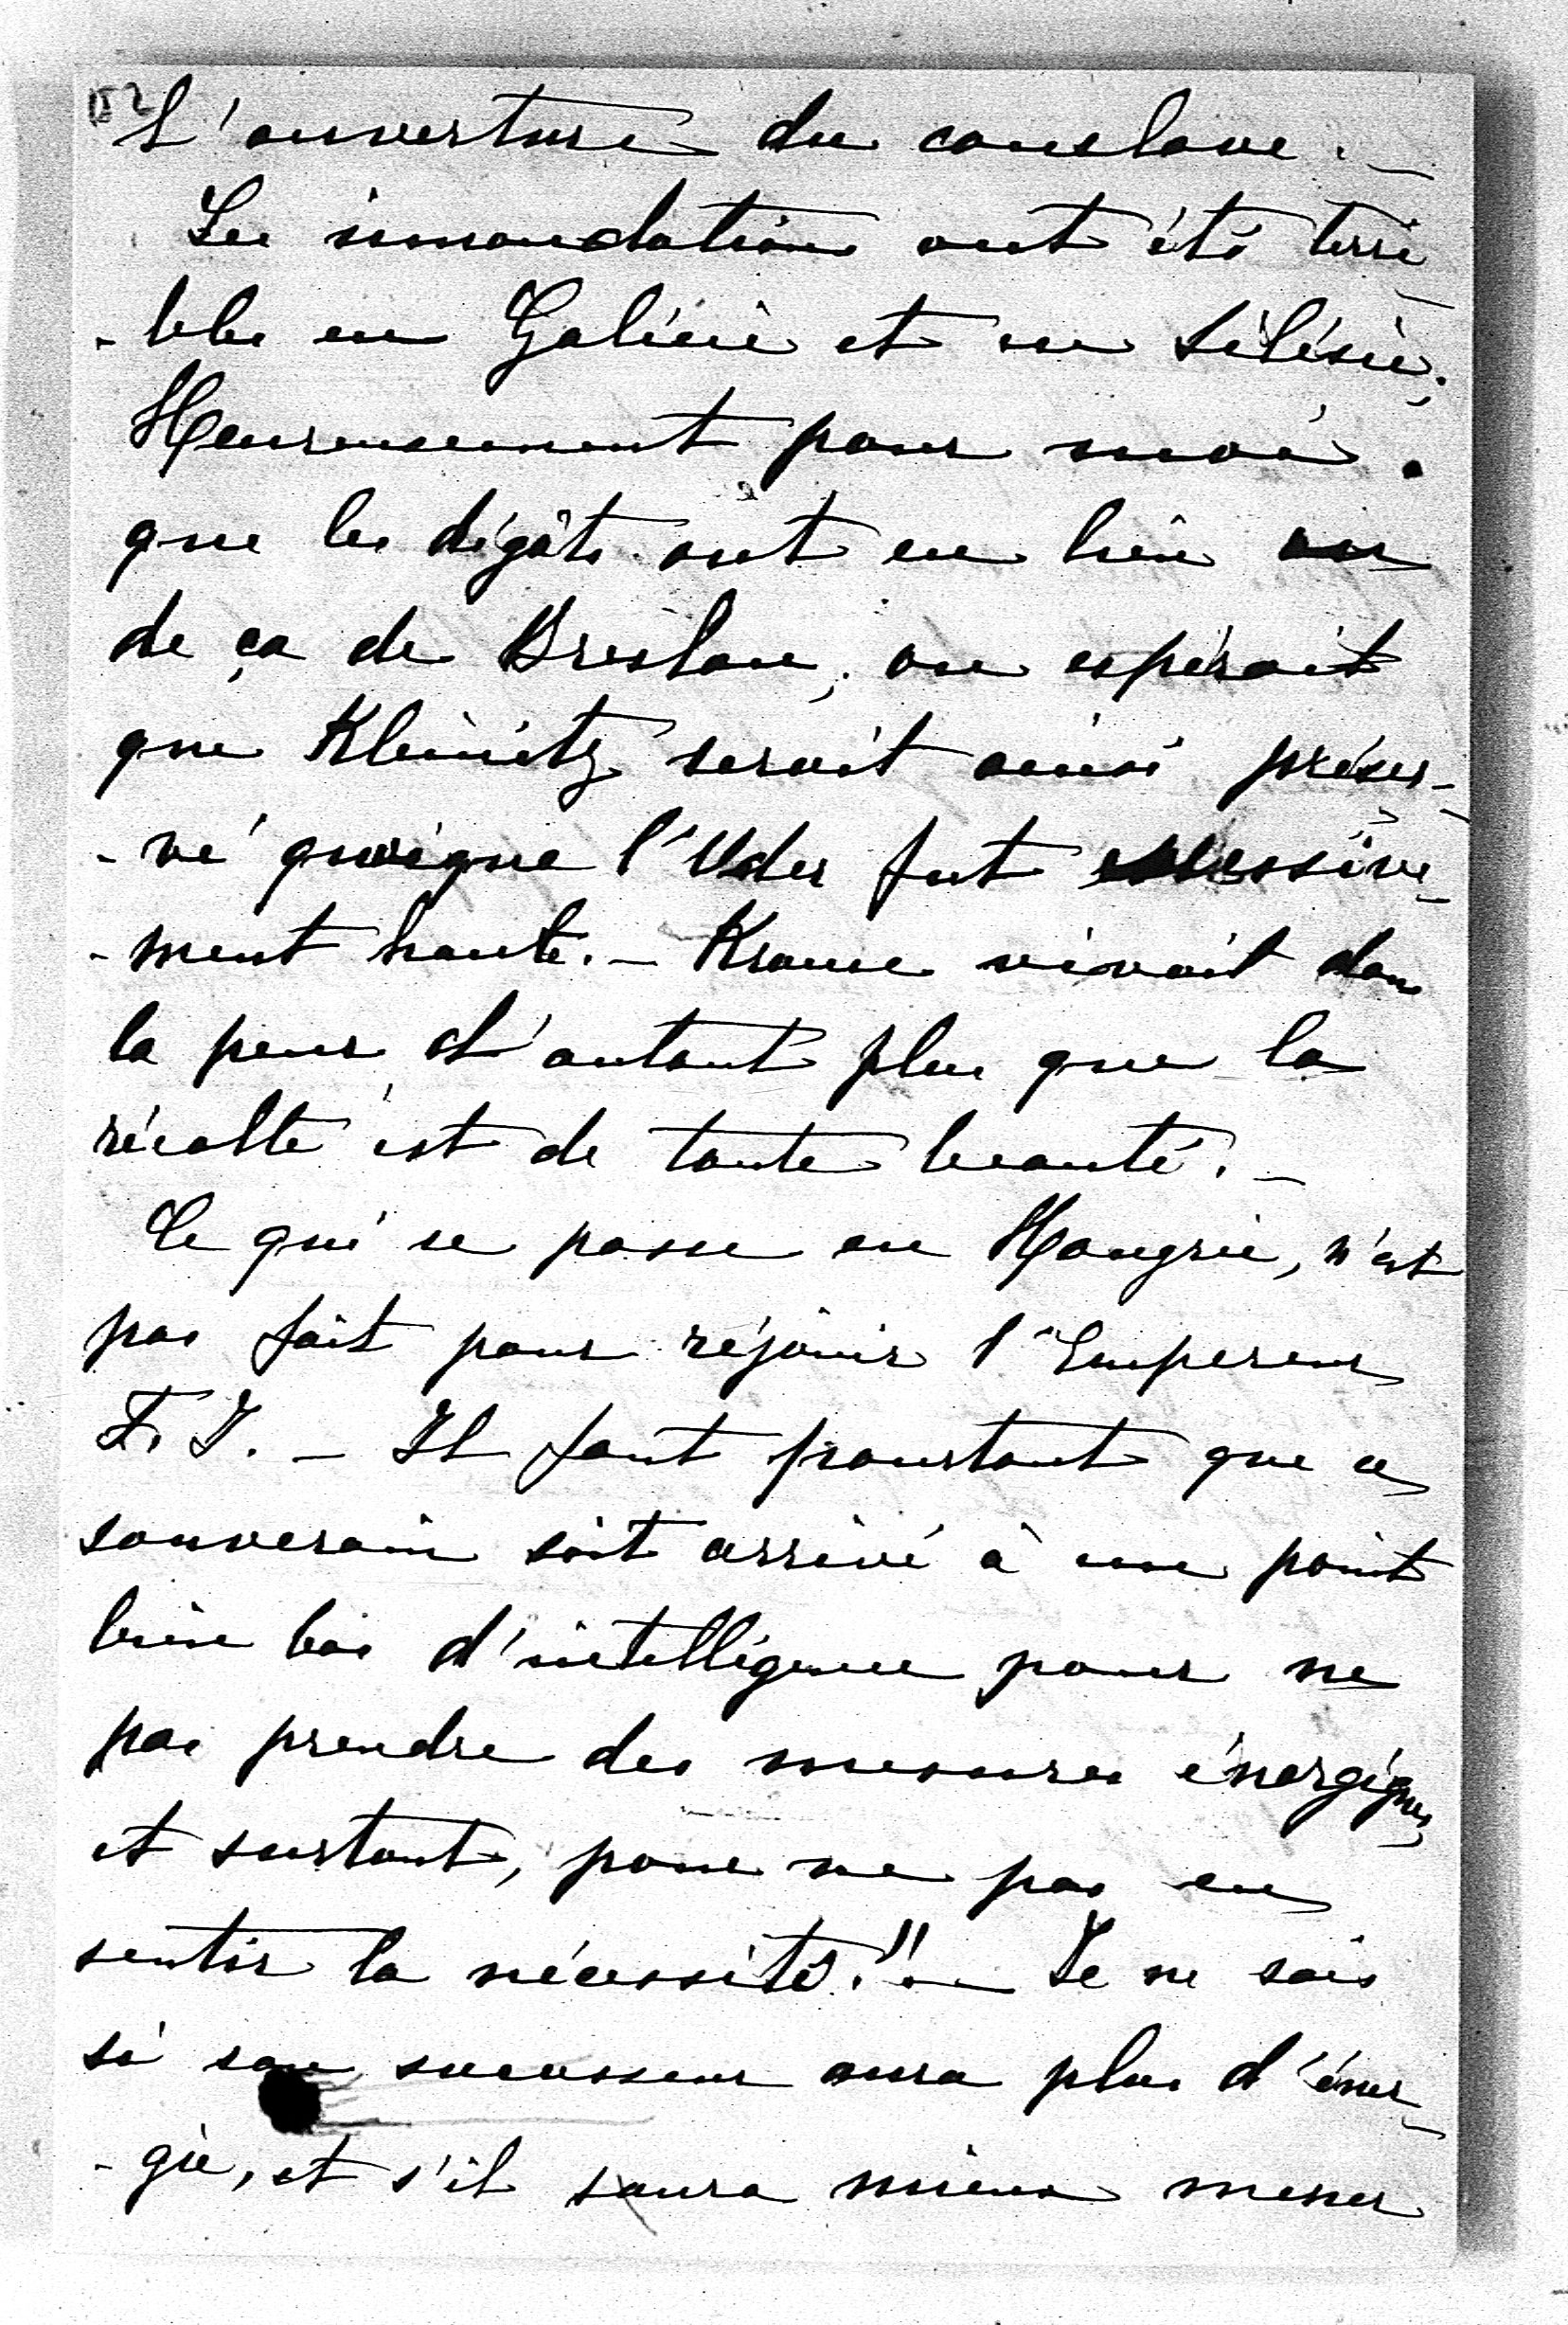 152
L'ouverture du conclave. —
Les innondations ont été terri
- bles en Galicie et en Silésie;
Heureusement pour moi.
que les dégâts ont eu lieu en
de ça de Breslau; on espérait
que Kleinitz serait ainsi préser-
- vé quoique l'Oder fut excessive-
- ment haute. — Krause vivait dans
la peur d'autant plus que la
récolte est de toute beauté. —
Ce qui se passe en Hongrie, n'est
pas fait pour réjouir l'Empereur
F. J. — Il faut pourtant que ce
souverain soit arrivé à un point
bien bas d'intelligence pour ne
pas prendre des mesures énergiques
et surtout, pour ne pas en
sentir la nécessité!! — Je ne sais
si son successeur aura plus d'éner-
- gie, et s'il saura mieux mener